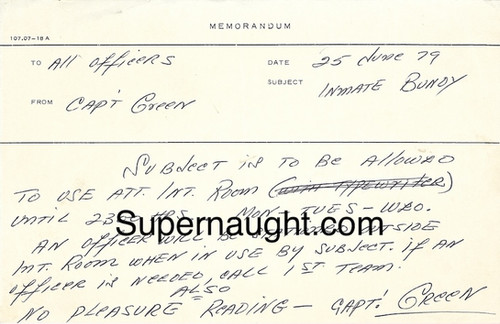 MEMORANDUM
107.07-18A
TO All Officers
DATE 25 June 79
FROM Capt Green
SUBJECT Inmate Bundy
Subject is to be allowed
to use Att. Int. Room (with typewriter)
until 23 HRS. Mon - Tues - Wed.
Supernaught.com
An officer will be outside
Int. Room when in use by subject. If an
officer is needed, call 1st Team.
Also
No pleasure reading — Capt. Green